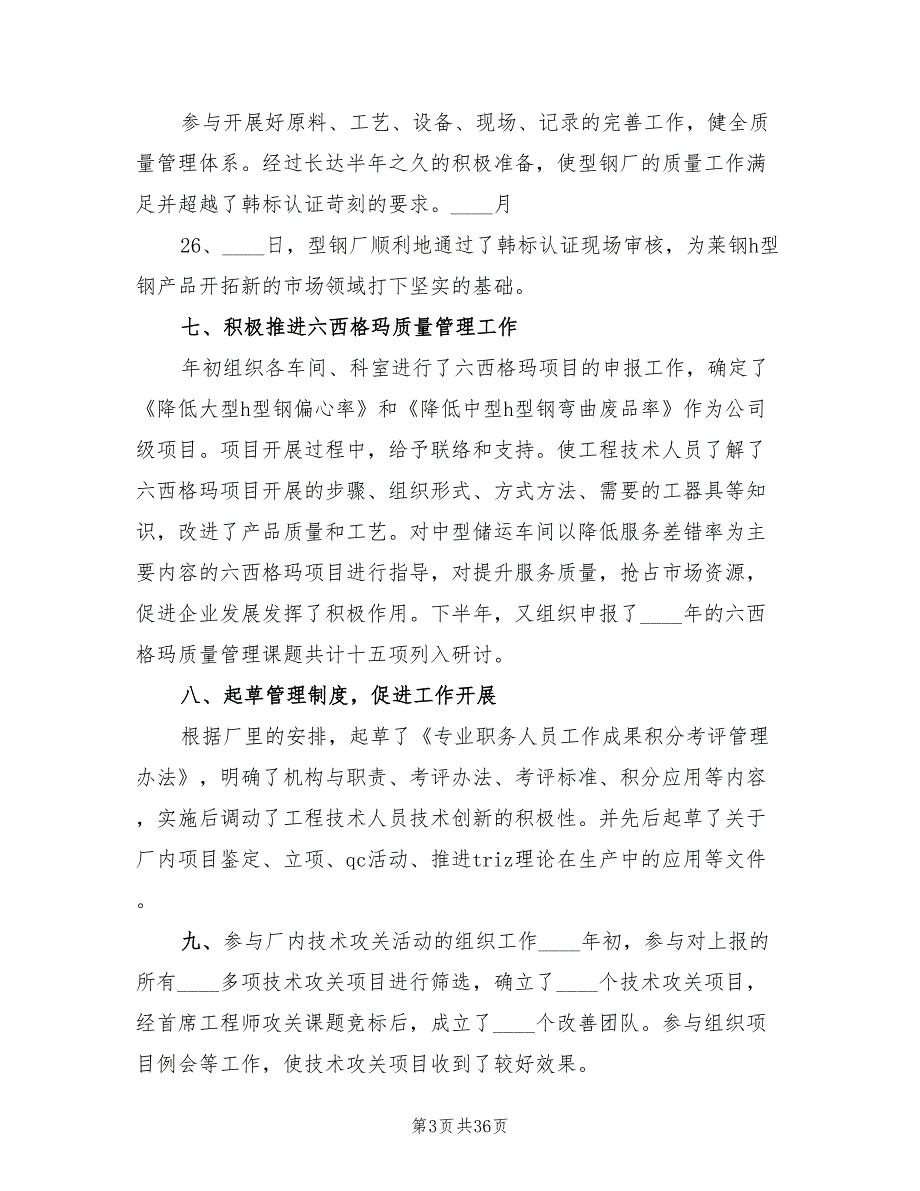 参与开展好原料、工艺、设备、现场、记录的完善工作，健全质
量管理体系。经过长达半年之久的积极准备，使型钢厂的质量工作满
足并超越了韩标认证苛刻的要求。____月
26、____日，型钢厂顺利地通过了韩标认证现场审核，为莱钢h型
钢产品开拓新的市场领域打下坚实的基础。
七、积极推进六西格玛质量管理工作
年初组织各车间、科室进行了六西格玛项目的申报工作，确定了
《降低大型h型钢偏心率》和《降低中型h型钢弯曲废品率》作为公司
级项目。项目开展过程中，给予联络和支持。使工程技术人员了解了
六西格玛项目开展的步骤、组织形式、方式方法、需要的工器具等知
识，改进了产品质量和工艺。对中型储运车间以降低服务差错率为主
要内容的六西格玛项目进行指导，对提升服务质量，抢占市场资源，
促进企业发展发挥了积极作用。下半年，又组织申报了____年的六西
格玛质量管理课题共计十五项列入研讨。
八、起草管理制度，促进工作开展
根据厂里的安排，起草了《专业职务人员工作成果积分考评管理
办法》，明确了机构与职责、考评办法、考评标准、积分应用等内容
，实施后调动了工程技术人员技术创新的积极性。并先后起草了关于
厂内项目鉴定、立项、qc活动、推进triz理论在生产中的应用等文件
。
九、参与厂内技术攻关活动的组织工作____年初，参与对上报的
所有____多项技术攻关项目进行筛选，确立了____个技术攻关项目，
经首席工程师攻关课题竞标后，成立了____个改善团队。参与组织项
目例会等工作，使技术攻关项目收到了较好效果。
第3页共36页